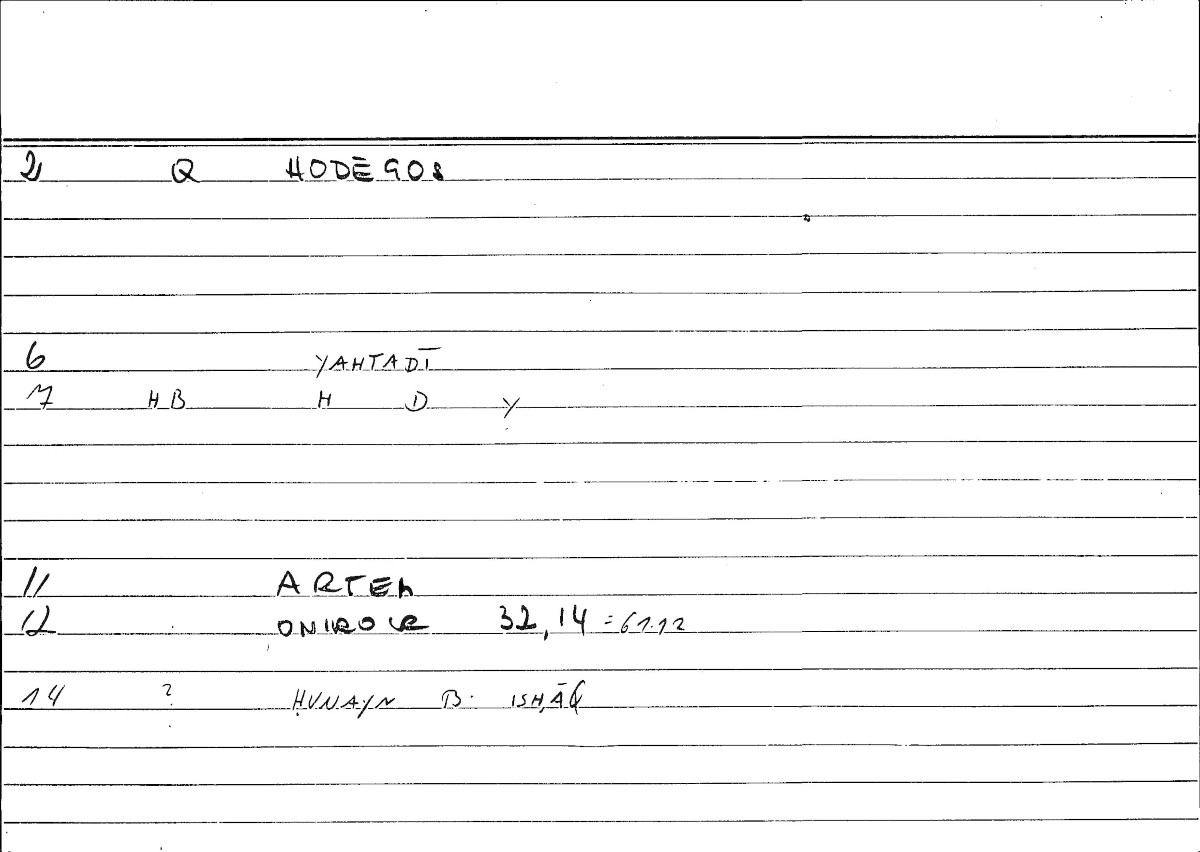 2 Q HODĒGOS
6 YAHTADĪ
7 HB H D Y
11 ARTEM
12 ONIROCR 32,14 = 61.12
14 ? ḤUNAYN B. ISḤĀQ